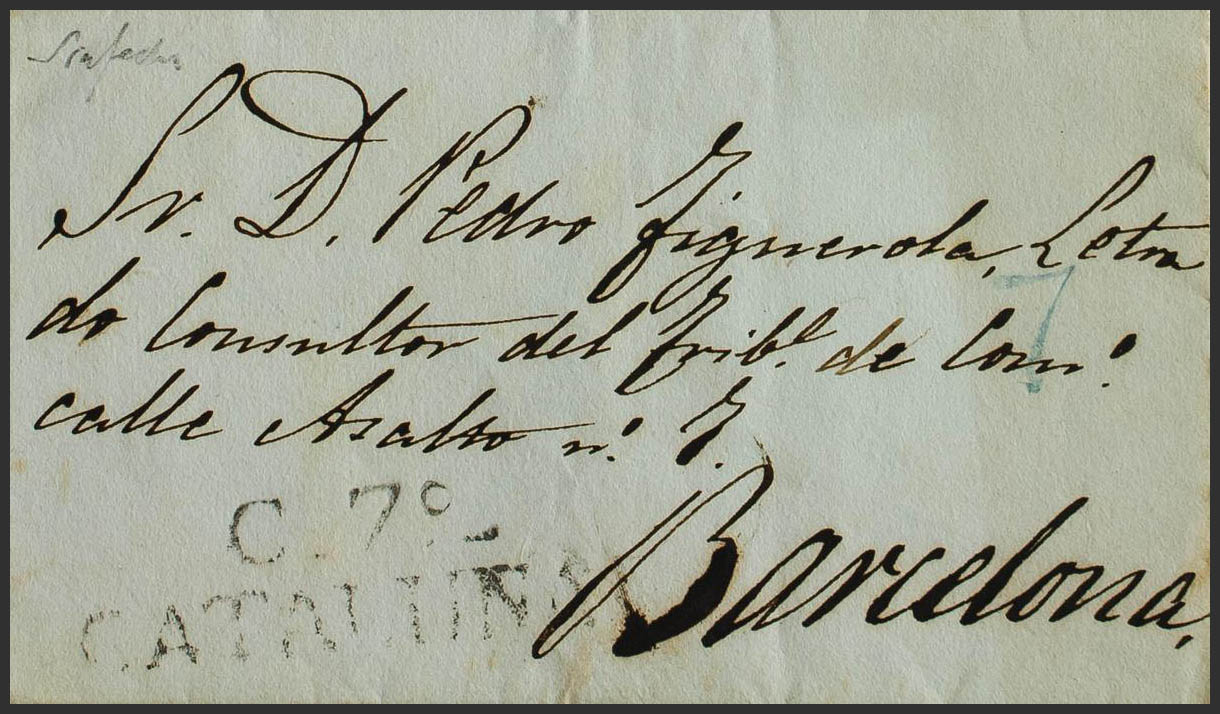 Sin fecha
Sr. D. Pedro Figuerola, Letra
do Consultor del Tribl. de Como.
calle Asalto no. 7.
C. 7o.
CATALUÑA
7
Barcelona,